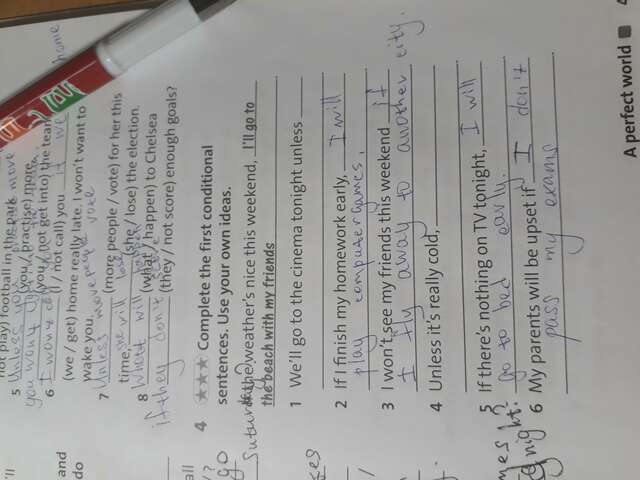 not play) football in the park
5 Unless you
(you / practise) more,
you won't
(you / not get into) the team.
6 I won't
(I / not call) you if we home
(we / get) home really late. I won't want to
wake you.
7 Unless more people vote
(more people / vote) for her this
time, she will lose (she / lose) the election.
8 What will happen (what / happen) to Chelsea
if they don't score (they / not score) enough goals?
4 ★★★ Complete the first conditional
sentences. Use your own ideas.
If the weather's nice this weekend, I'll go to
the beach with my friends
1 We'll go to the cinema tonight unless
2 If I finish my homework early, I will
play computer games.
3 I won't see my friends this weekend if
I fly away to another city.
4 Unless it's really cold,
5 If there's nothing on TV tonight, I will
go to bed early.
6 My parents will be upset if I don't
pass my exams
A perfect world
'll
and
do
go
night.